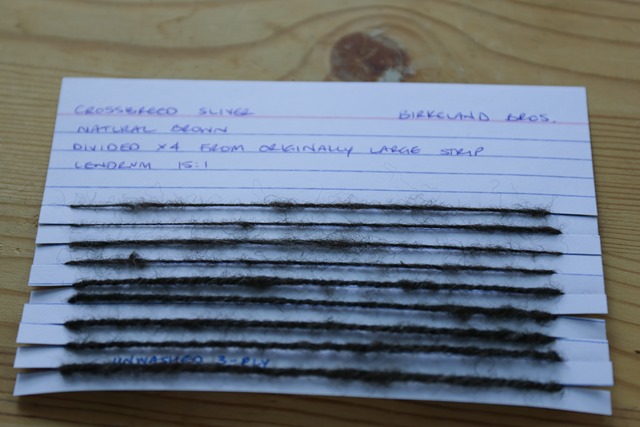 CROSSBREED SLIVER BIRKELAND BROS.
NATURAL BROWN
DIVIDED X4 FROM ORIGINALLY LARGE STRIP
LENDRUM 15:1
UNWASHED 3-PLY